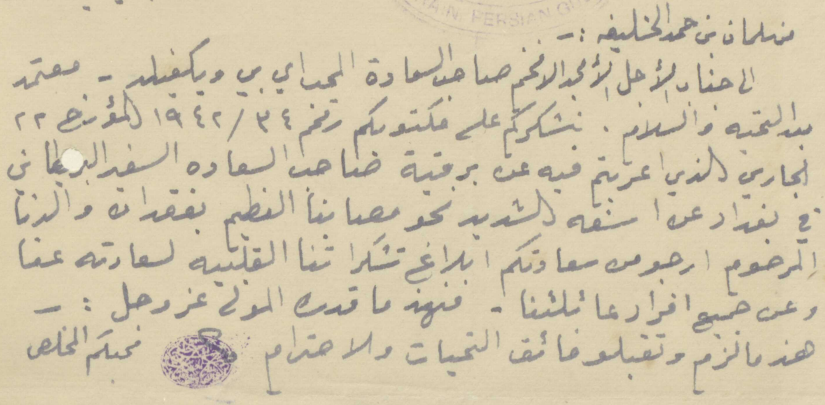 AIN, PERSIAN GU
من سلمان بن حمد الخليفه :ـ
الى جناب الأجل الأمجد الافخم صاحب السعادة الميجر اي بي ويكفيلد - معتمد
بعد التحيه والسلام . نشكركم على مكتوبكم رقم ٣٤/١٩٤٢ المؤرخ ٢٢
الجاري الذي اعربتم فيه عن برقية صاحب السعاده السفير البريطاني
في بغداد عن اسفه الشديد نحو مصابنا العظيم بفقدان والدنا
المرحوم ارجو من سعادتكم ابلاغ تشكراتنا القلبيه لسعادته عنا
وعن جميع افراد عائلتنا - فنهذ ما قدره المولى عز وجل :ـ
هذ مالزم وتقبلو فائق التحيات والاحترام محبكم المخلص